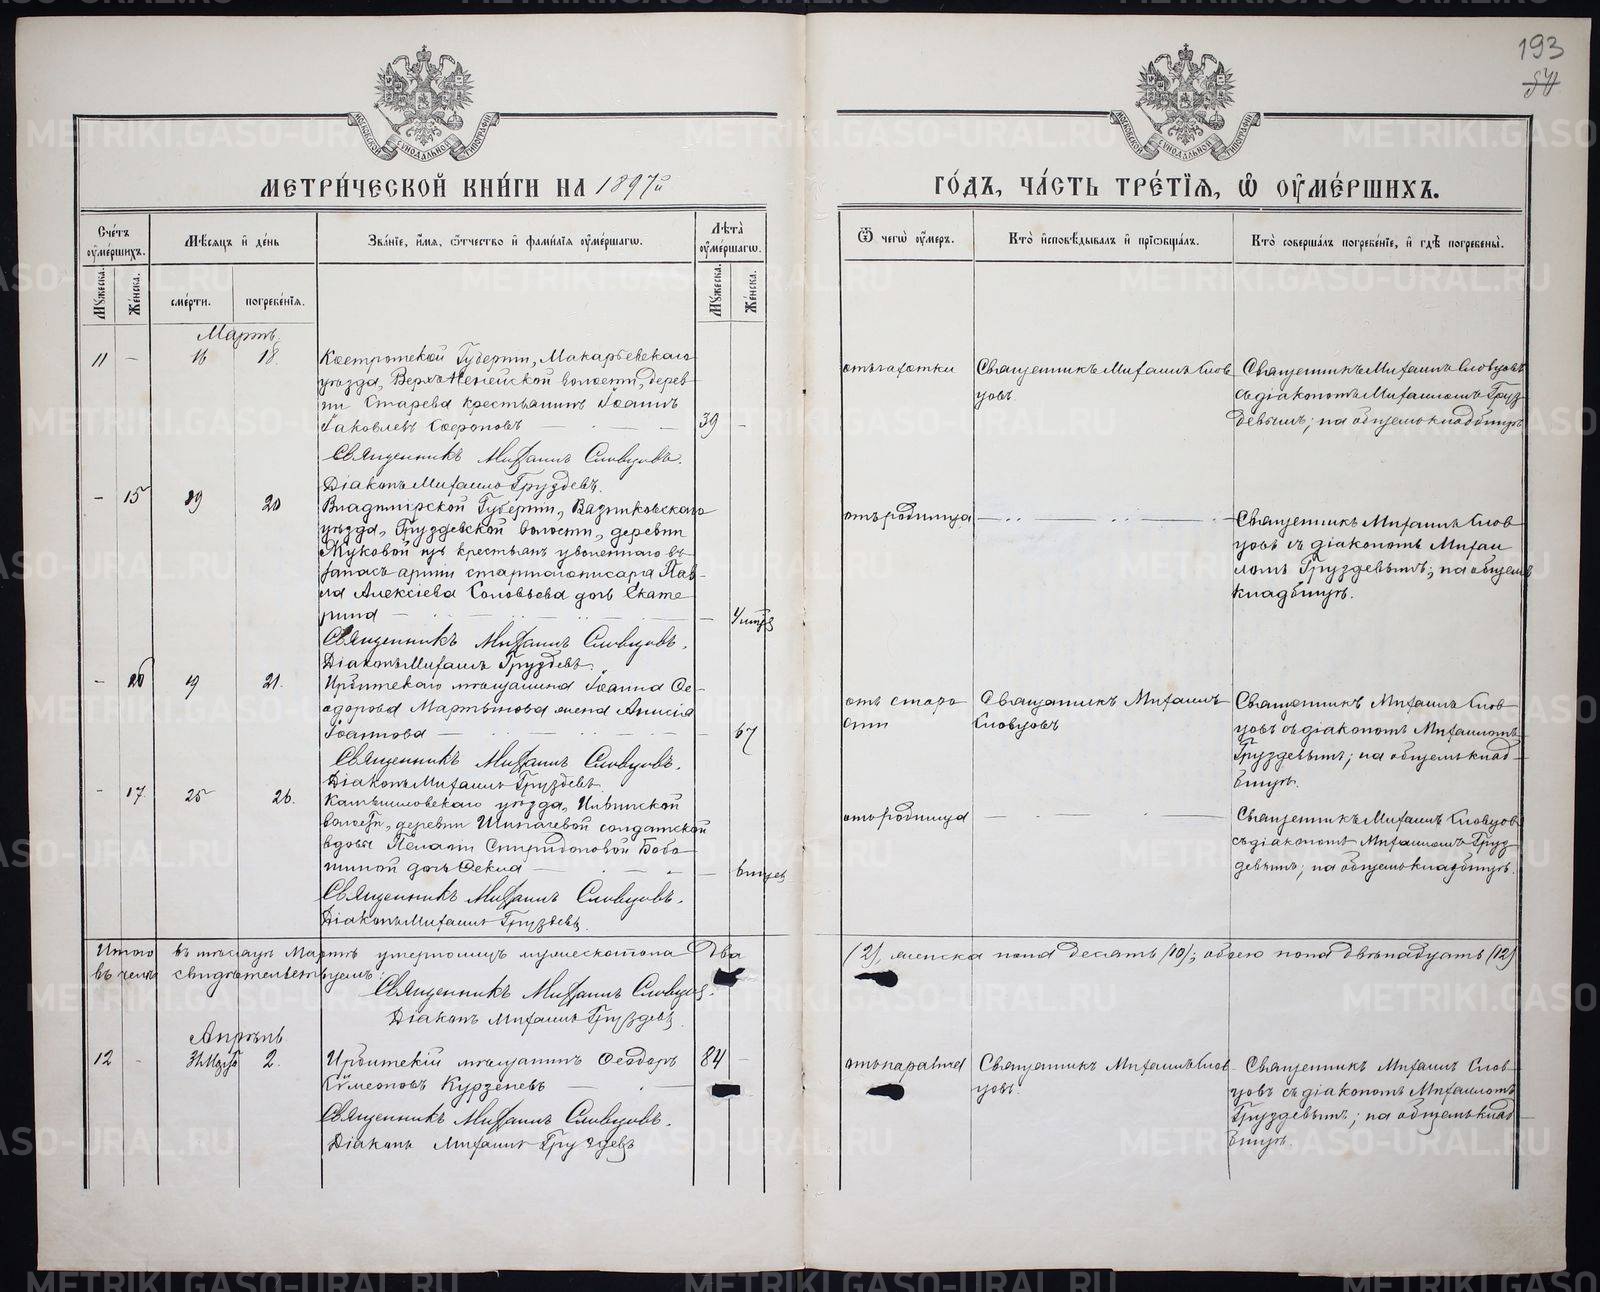 193
МОСКОВСКОЙ СѴНОДАЛЬНОЙ ТИПОГРАФІИ
МОСКОВСКОЙ СѴНОДАЛЬНОЙ ТИПОГРАФІИ
МЕТРИ́ЧЕСКОЙ КНИ́ГИ НА 1897й
ГО́ДЪ, ЧА́СТЬ ТРЕ́ТЇЯ, Ѡ҆ ОУ҆МЕ́РШИХЪ.
Сче́тъ оу҆ме́ршихъ.
Мѣсяцъ и҆ де́нь
Зва́нїе, и҆́мя, ѻ҆́тчество и҆ фами́лїя оу҆ме́ршагѡ.
Лѣта̀ оу҆ме́ршагѡ.
Ѿ чегѡ̀ оу҆́меръ.
Кто̀ и҆сповѣ́дывалъ и҆ прїѡбща́лъ.
Кто̀ соверша́лъ погребе́нїе, и҆ гдѣ̀ погребены̀.
Мꙋ́жеска.
Же́нска.
сме́рти.
погребе́нїя.
Мꙋ́жеска.
Же́нска.
Мартъ
11 - 16 18.
Костромской Губерніи, Макарьевскаго
уѣзда, волости, дерев-
ни Старева крестьянинъ Іоаннъ
Іаковлевъ Софроновъ 39 -
Священникъ Михаилъ Словцовъ.
Діаконъ Михаилъ Груздевъ.
отъ чахотки
Священникъ Михаилъ Слов
цовъ
Священникъ Михаилъ Словцовъ
съ діакономъ Михаиломъ Груз
девымъ; на общемъ кладбищѣ
- 15 19 20
Владимірской Губерніи, Вязниковскаго
уѣзда, Груздевской волости, деревни
Жуковой изъ крестьянъ уволеннаго въ
запасъ арміи старшаго писаря Пав-
ла Алексіева Соловьева дочь Екате
рина -
Священникъ Михаилъ Словцовъ.
Діаконъ Михаилъ Груздевъ.
отъ родимца
Священникъ Михаилъ Слов
цовъ съ діакономъ Михаи
ломъ Груздевымъ; на общемъ
кладбищѣ.
- 16 19 21.
Ирбитскаго мѣщанина Іоанна Ѳе-
одорова Мартынова жена Анисія
Іоаннова - 67
Священникъ Михаилъ Словцовъ.
Діаконъ Михаилъ Груздевъ.
отъ старо
сти
Священникъ Михаилъ
Словцовъ
Священникъ Михаилъ Слов-
цовъ съ діакономъ Михаиломъ
Груздевымъ; на общемъ клад-
бищѣ.
- 17. 25 26.
Камышловскаго уѣзда, Ильинской
волости, деревни солдатской
вдовы Пелагіи Спиридоновой
дочь Ѳекла - 6 мцев
Священникъ Михаилъ Словцовъ.
Діаконъ Михаилъ Груздевъ.
отъ родимца
Священникъ Михаилъ Словцовъ
съ діакономъ Михаиломъ Груз
девымъ; на общемъ кладбищѣ.
Итого въ мѣсяцѣ Мартѣ умершихъ мужеска пола два (2), женска пола десять (10); обоего пола двѣнадцать (12)
въ чемъ свидѣтельствуемъ:
Священникъ Михаилъ Словцовъ.
Діаконъ Михаилъ Груздевъ.
Апрѣль
12 - 31 Марта 2.
Ирбитскій мѣщанинъ Ѳеодоръ 84 -
Сѵмеоновъ Курзеневъ
Священникъ Михаилъ Словцовъ.
Діаконъ Михаилъ Груздевъ
отъ паралича
Священникъ Михаилъ Слов-
цовъ.
Священникъ Михаилъ Слов-
цовъ съ діакономъ Михаиломъ
Груздевымъ; на общемъ клад
бищѣ.
METRIKI.GASO-URAL.RU